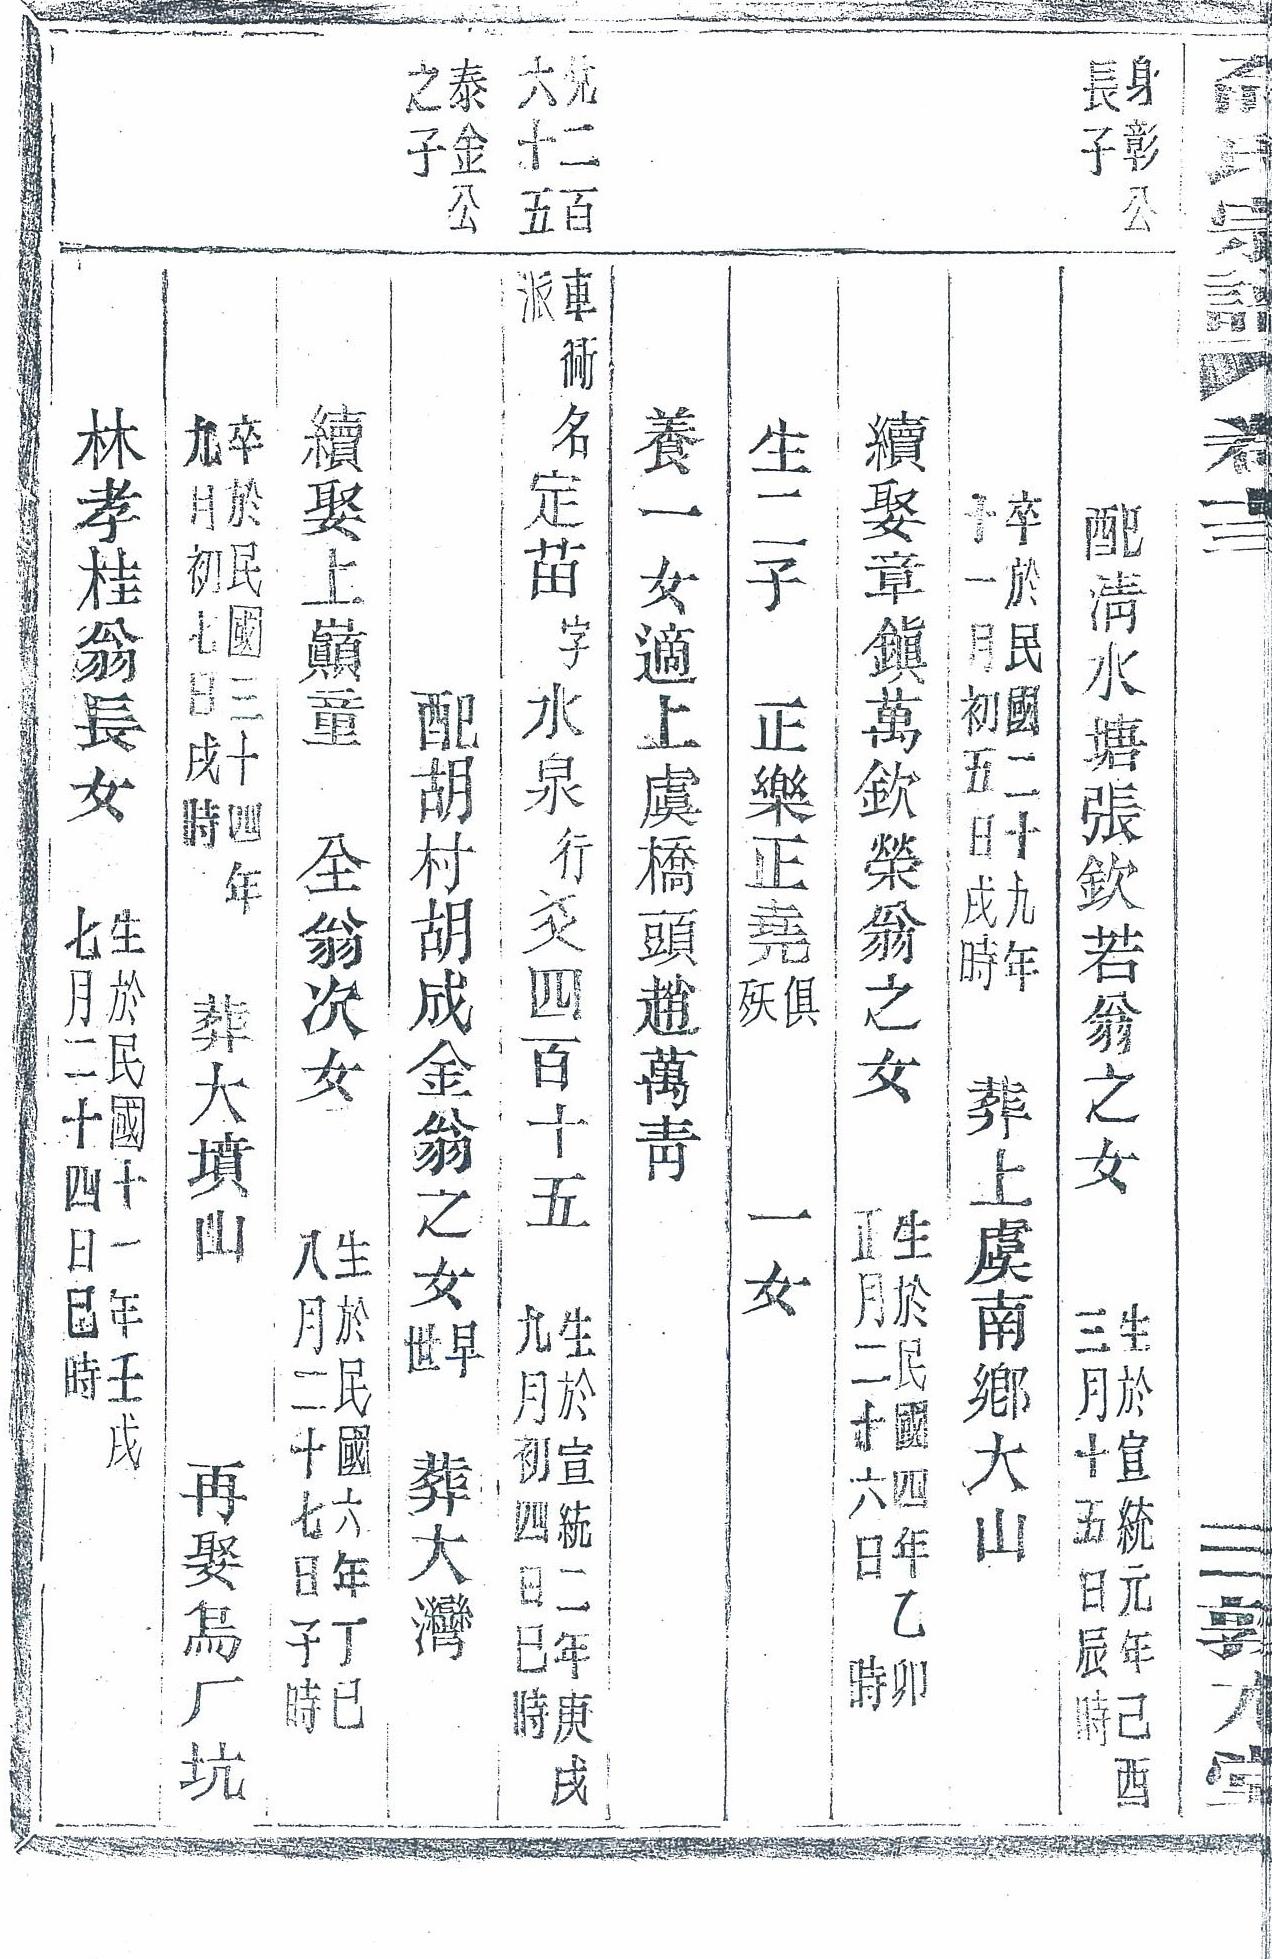 氏宗譜 卷三 三 堂
身彰公
長子
配淸水塘張欽若翁之女 生於宣統元年己酉
三月十五日辰時
卒於民國二十九年
十一月初五日戌時 葬上虞南鄉大山
續娶章鎮萬欽榮翁之女 生於民國四年乙卯
正月二十六日 時
生二子 正樂正堯俱
殀 一女
養一女適上虞橋頭趙萬靑
二百
六十五
車衕
派
名定苗字水泉行交四百十五 生於宣統二年庚戌
九月初四日巳時
泰金公
之子
配胡村胡成金翁之女早
世 葬大灣
續娶上巔童 仝翁次女 生於民國六年丁巳
八月二十七日子時
卒於民國三十四年
九月初七日戌時 葬大墳山 再娶烏厂坑
林孝桂翁長女 生於民國十一年壬戌
七月二十四日巳時